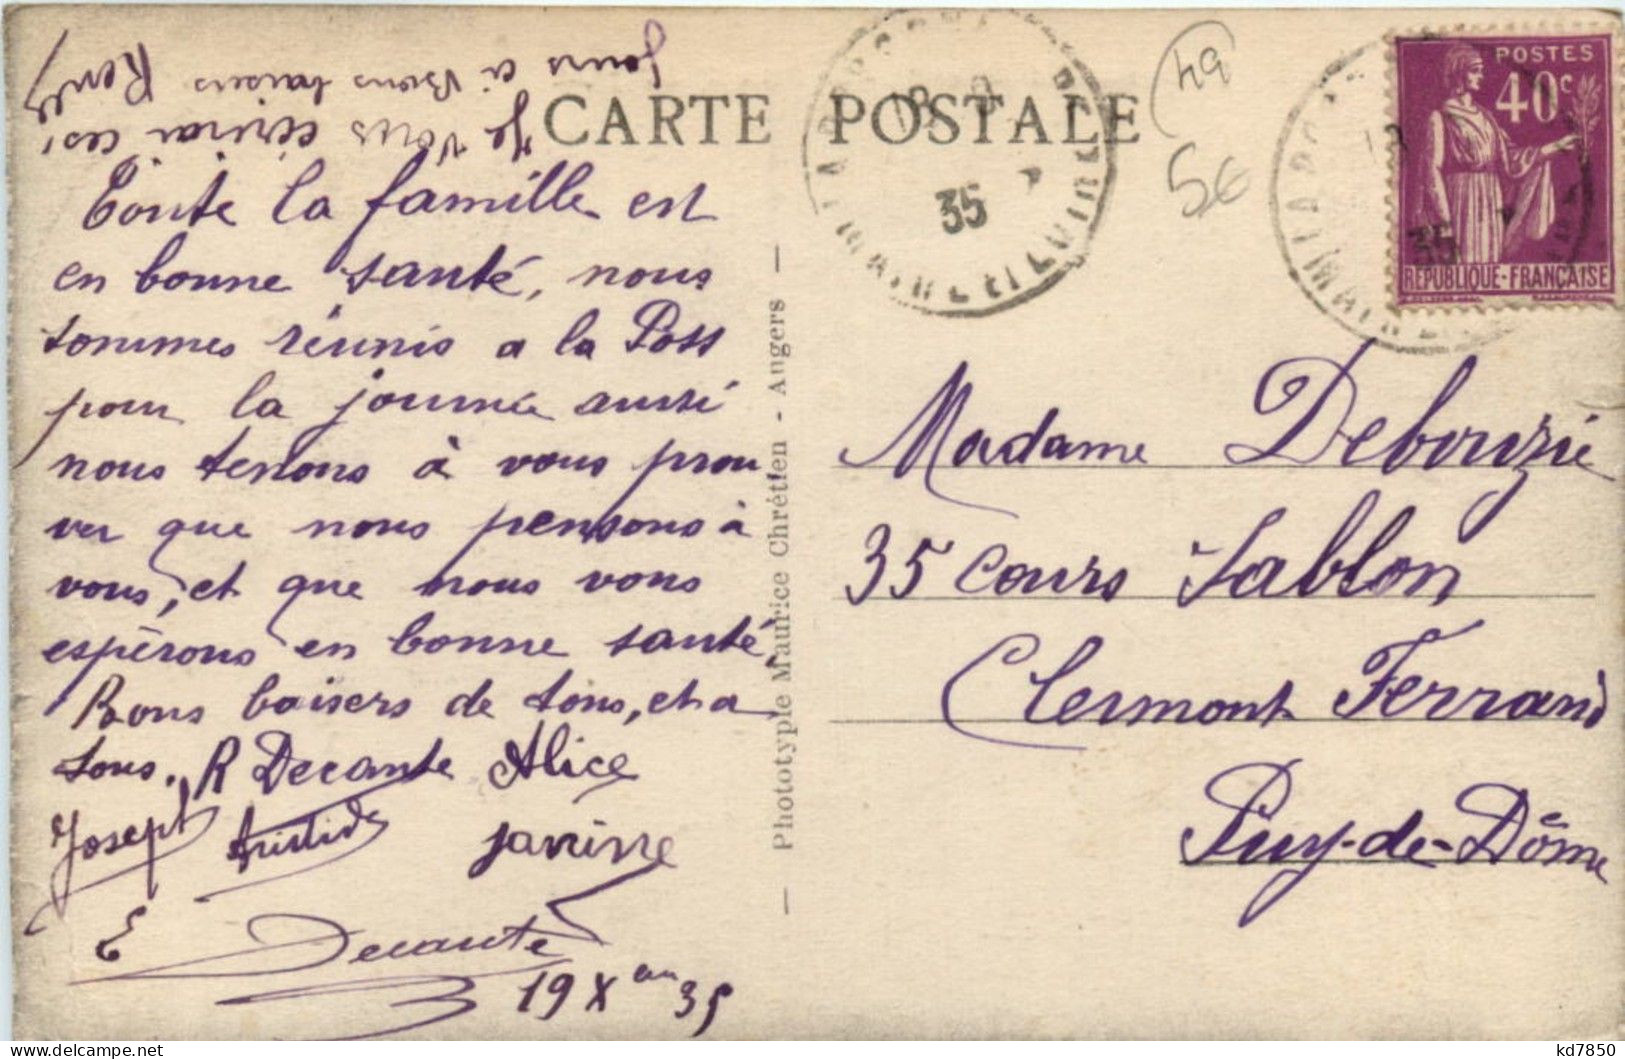 Je vous écrirai ces
jours ci Bons baisers Renée
Toute la famille est
en bonne santé, nous
sommes réunis a la Poss
pour la journée aussi
nous tenons à vous prou
ver que nous pensons à
vous, et que nous vous
espérons en bonne santé,
Bons baisers de tous, et a
tous. R Decante Alice
Joseph Aristide Janine
E Decante
19 Xbre 35
Phototypie Maurice Chrétien - Angers
CARTE POSTALE
35
49
5€
POSTES
40c
35
REPUBLIQUE-FRANÇAISE
Madame Debouzie
35 Cours Sablon
Clermont Ferrand
Puy-de-Dôme
kd7850